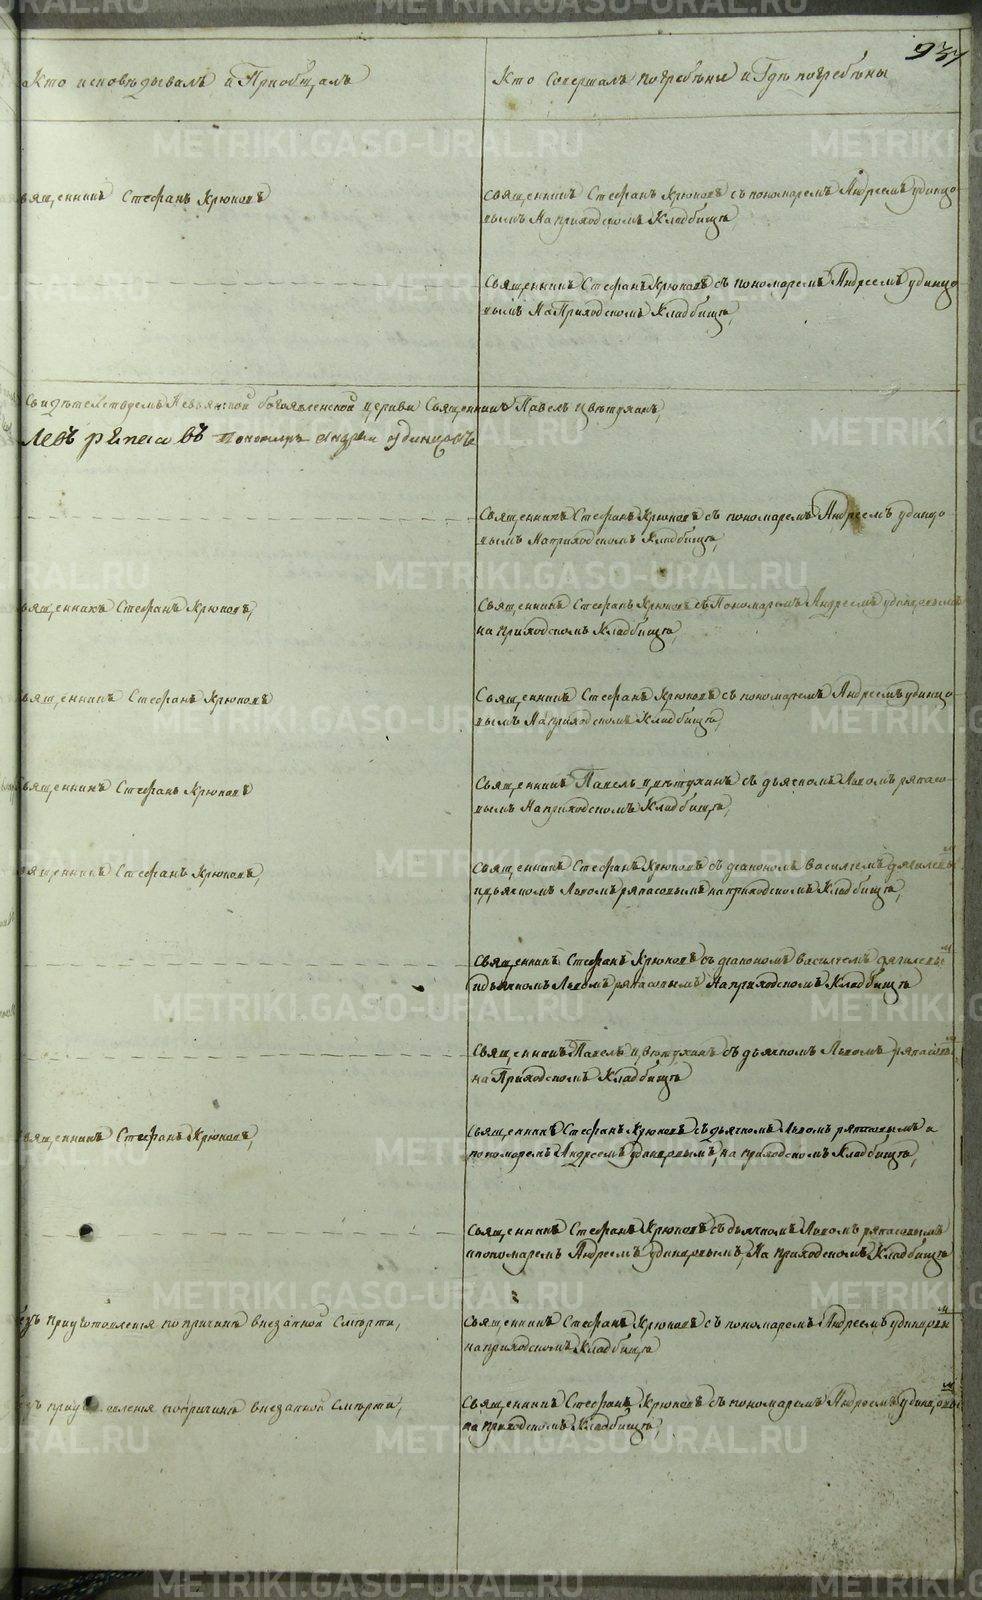 937
Кто исповѣдывалъ и Пріобщалъ
Кто Совершалъ погребѣніе и Гдѣ погребѣны
вященникъ Стефанъ Крюковъ
Священникъ Стефанъ Крюковъ съ пономаремъ Андреемъ удинцо-
вымъ На приходскомъ Кладбищѣ,
Священникъ Стефанъ Крюковъ съ пономаремъ Андреемъ удинцо
вымъ На Приходскомъ Кладбищѣ,
Невьянской богоявленской церкви Священникъ Павелъ Цвѣтухинъ,
Левъ рѣпасавъ Пономарь Андрей удинцовъ
Священникъ Стефанъ Крюковъ съ пономаремъ Андреемъ удинцо-
вымъ На приходскомъ Кладбищѣ,
вященникъ Стефанъ Крюковъ,
Священникъ Стефанъ Крюковъ съ Пономаремъ Андреемъ удинцовымъ
на приходскомъ Кладбищѣ,
вященникъ Стефанъ Крюковъ
Священникъ Стефанъ Крюковъ съ пономаремъ Андреемъ удинцо-
вымъ На приходскомъ Кладбищѣ,
Священникъ Стефанъ Крюковъ
Священникъ Павелъ Цвѣтухинъ съ дьячкомъ Львомъ ряпасо-
вымъ На приходскомъ Кладбищѣ,
вященникъ Стефанъ Крюковъ,
Священникъ Стефанъ Крюковъ съ діакономъ Василіемъ дягилевымъ
и дьячкомъ Львомъ ряпасовымъ на приходскомъ Кладбищѣ,
Священникъ Стефанъ Крюковъ съ діакономъ Василіемъ дягилевымъ
и дьячкомъ Львомъ ряпасовымъ На приходскомъ Кладбищѣ
Священникъ Павелъ Цвѣтухинъ съ дьячкомъ Львомъ ряпасовымъ
на Приходскомъ Кладбищѣ
вященникъ Стефанъ Крюковъ,
Священникъ Стефанъ Крюковъ съ дьячкомъ Львомъ ряпасовымъ и
пономаремъ Андреемъ удинцовымъ, на приходскомъ Кладбищѣ,
Священникъ Стефанъ Крюковъ съ дьячкомъ Львомъ ряпасовымъ
и пономаремъ Андреемъ удинцовымъ, На приходскомъ Кладбищѣ
безъ приуготовленія по причинѣ внезапной Смѣрти,
Священникъ Стефанъ Крюковъ съ пономаремъ Андреемъ удинцовымъ
на приходскомъ Кладбищѣ
по причинѣ внезапной Смѣрти,
Священникъ Стефанъ Крюковъ съ пономаремъ Андреемъ удинцовымъ
на приходскомъ Кладбищѣ,
METRIKI.GASO-URAL.RU